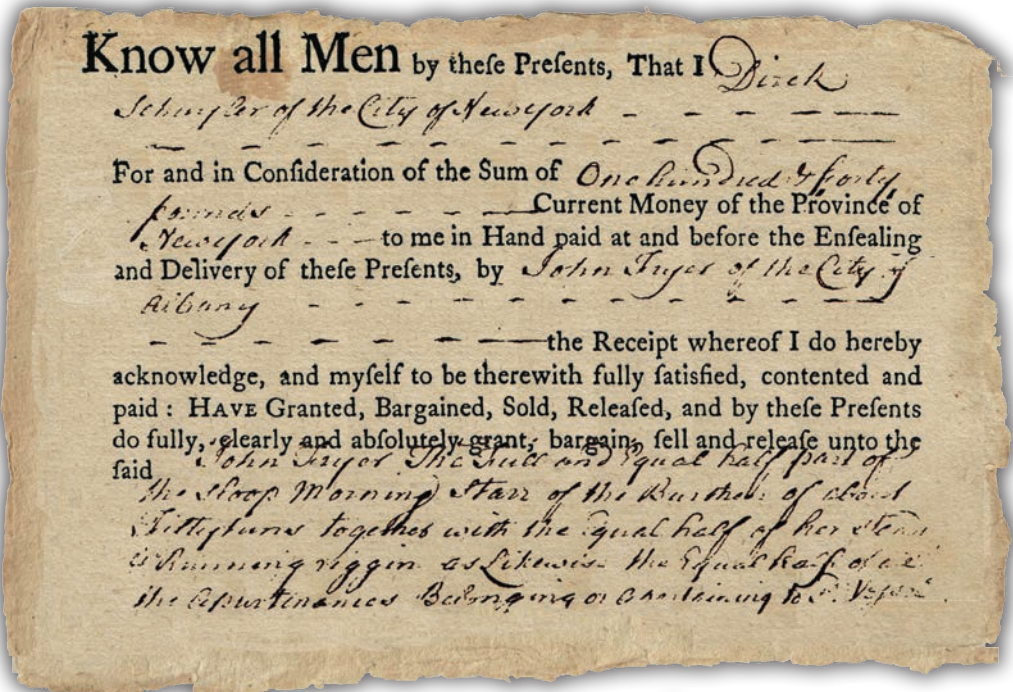 Know all Men by theſe Preſents, That I Dirck
Schuyler of the City of Newyork
For and in Conſideration of the Sum of One hundred & forty
pounds Current Money of the Province of
Newyork to me in Hand paid at and before the Enſealing
and Delivery of theſe Preſents, by John Fryer of the City of
Albany
the Receipt whereof I do hereby
acknowledge, and myſelf to be therewith fully ſatisfied, contented and
paid : HAVE Granted, Bargained, Sold, Releaſed, and by theſe Preſents
do fully, clearly and abſolutely grant, bargain, ſell and releaſe unto the
ſaid John Fryer The Full and Equal half part of
the Sloop Morning Starr of the Burthen of about
together with the Equal half of her
Running riggin as Likewise the Equal half of
the Apurtinances Belonging or to